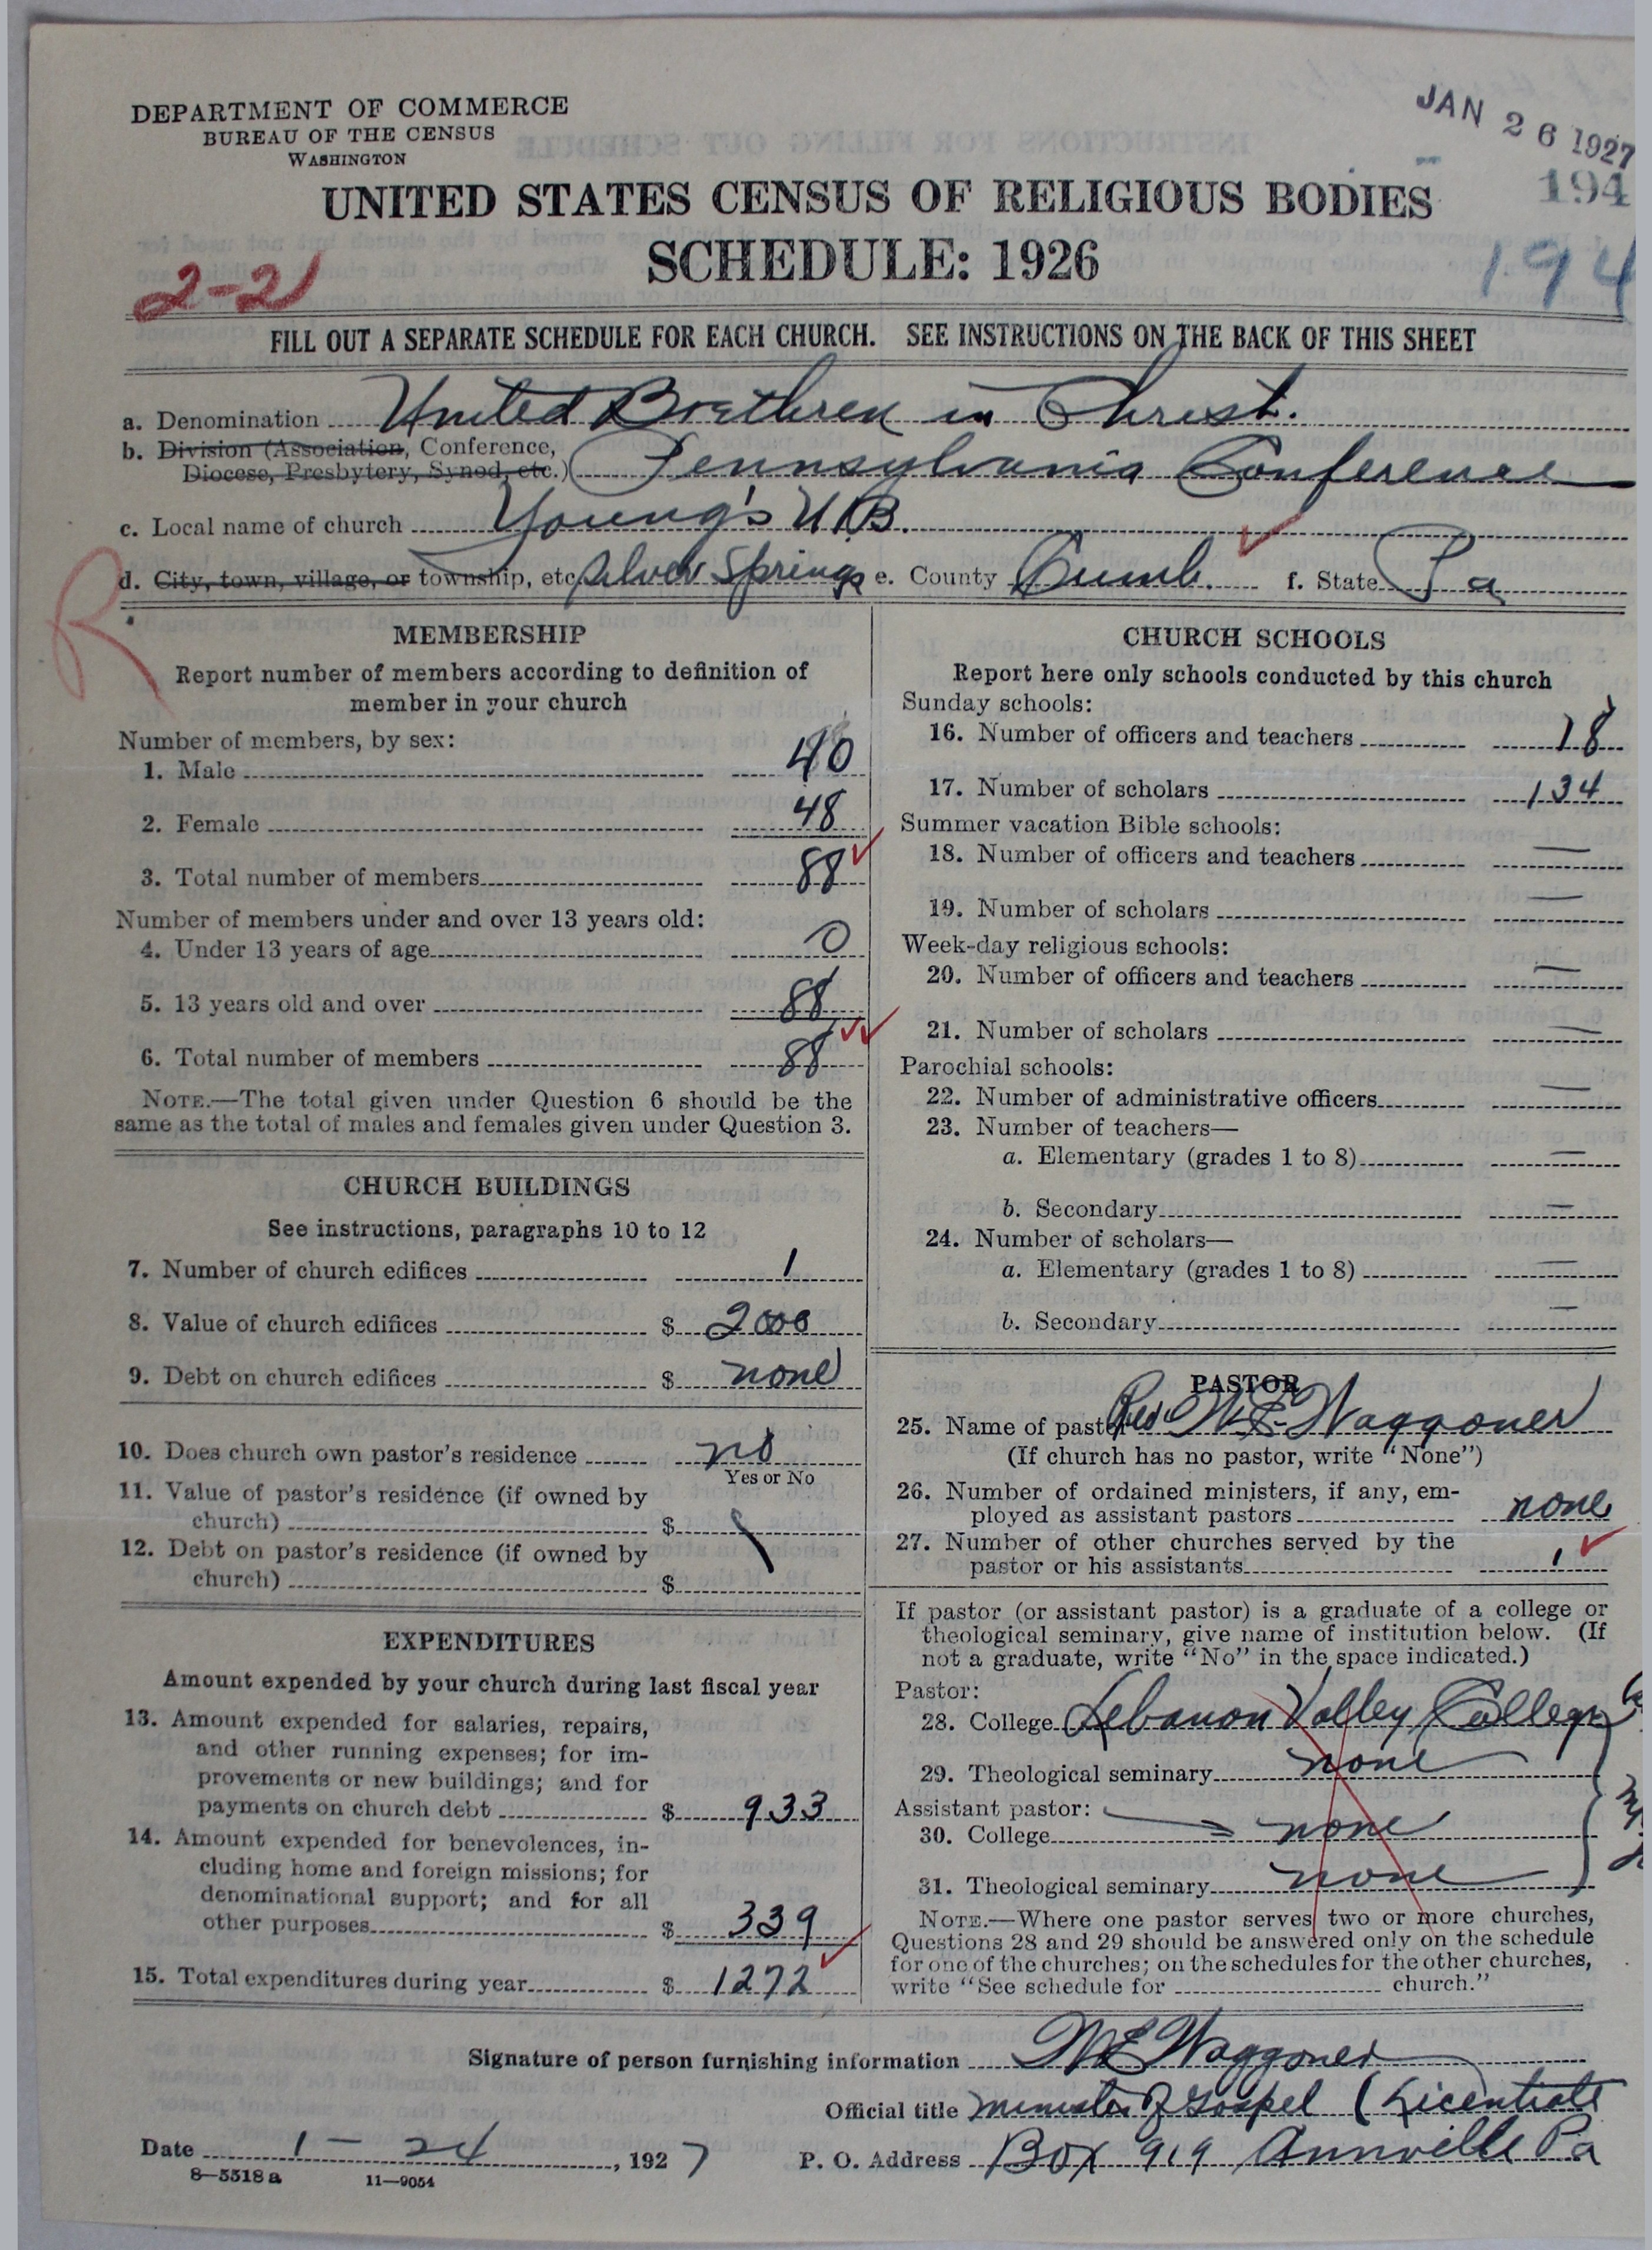 DEPARTMENT OF COMMERCE
BUREAU OF THE CENSUS
WASHINGTON
JAN 26 1927
194
UNITED STATES CENSUS OF RELIGIOUS BODIES
SCHEDULE: 1926
2-21
194
FILL OUT A SEPARATE SCHEDULE FOR EACH CHURCH. SEE INSTRUCTIONS ON THE BACK OF THIS SHEET
a. Denomination United Brethren in Christ.
b. Division (Association, Conference,
Diocese, Presbytery, Synod, etc.) Pennsylvania Conference
c. Local name of church Young's U.B.
d. City, town, village, or township, etc. Silver Springs e. County Cumb. f. State Pa
R
MEMBERSHIP
Report number of members according to definition of
member in your church
Number of members, by sex:
1. Male 40
2. Female 48
3. Total number of members 88
Number of members under and over 13 years old:
4. Under 13 years of age 0
5. 13 years old and over 88
6. Total number of members 88
NOTE.—The total given under Question 6 should be the
same as the total of males and females given under Question 3.
CHURCH BUILDINGS
See instructions, paragraphs 10 to 12
7. Number of church edifices 1
8. Value of church edifices $ 2000
9. Debt on church edifices $ none
10. Does church own pastor's residence no
Yes or No
11. Value of pastor's residence (if owned by
church) $
12. Debt on pastor's residence (if owned by
church) $
EXPENDITURES
Amount expended by your church during last fiscal year
13. Amount expended for salaries, repairs,
and other running expenses; for im-
provements or new buildings; and for
payments on church debt $ 933
14. Amount expended for benevolences, in-
cluding home and foreign missions; for
denominational support; and for all
other purposes $ 339
15. Total expenditures during year $ 1272
CHURCH SCHOOLS
Report here only schools conducted by this church
Sunday schools:
16. Number of officers and teachers 18
17. Number of scholars 134
Summer vacation Bible schools:
18. Number of officers and teachers —
19. Number of scholars —
Week-day religious schools:
20. Number of officers and teachers —
21. Number of scholars —
Parochial schools:
22. Number of administrative officers —
23. Number of teachers—
a. Elementary (grades 1 to 8) —
b. Secondary —
24. Number of scholars—
a. Elementary (grades 1 to 8) —
b. Secondary —
PASTOR
25. Name of pastor Rev. W.E. Waggoner
(If church has no pastor, write "None")
26. Number of ordained ministers, if any, em-
ployed as assistant pastors none
27. Number of other churches served by the
pastor or his assistants 1
If pastor (or assistant pastor) is a graduate of a college or
theological seminary, give name of institution below. (If
not a graduate, write "No" in the space indicated.)
Pastor:
28. College Lebanon Valley College
29. Theological seminary none
Assistant pastor:
30. College none
31. Theological seminary none
NOTE.—Where one pastor serves two or more churches,
Questions 28 and 29 should be answered only on the schedule
for one of the churches; on the schedules for the other churches,
write "See schedule for church."
Signature of person furnishing information W E Waggoner
Official title Minister of Gospel (Licentiate
Date 1 – 24, 1927 P. O. Address Box 919 Annville Pa
8—5518a 11—9054